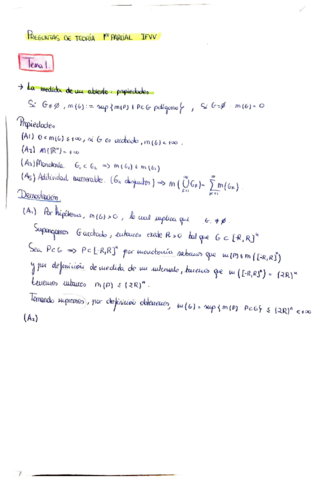 PREGUNTAS DE TEORÍA 1er PARCIAL IFVV
Tema 1
→ La medida de un abierto - propiedades
Si G≠∅, m(G) := sup{m(P): P⊂G polígono}, Si G=∅ m(G)=0
Propiedades
(A1) 0<m(G)≤+∞, si G es acotado, m(G)<+∞.
(A2) m(ℝⁿ)=+∞
(A3) Monotonía G₁⊂G₂ ⇒ m(G₁)≤m(G₂)
(A5) Aditividad numerable. (Gₖ disjuntos) ⇒ m(⋃Gₖ)=∑m(Gₖ)
Demostración
(A1) Por hipótesis, m(G)>0, lo cual implica que G≠∅
Supongamos G acotado, entonces existe R>0 tal que G⊂[-R,R]ⁿ
Sea P⊂G ⇒ P⊂[-R,R]ⁿ por monotonía sabemos que m(P)≤m([-R,R]ⁿ)
y por definición de medida de un intervalo, tenemos que m([-R,R]ⁿ)=(2R)ⁿ
Tenemos entonces m(P)≤(2R)ⁿ.
Tomando supremos, por definición obtenemos, m(G)=sup{m(P) P⊂G}≤(2R)ⁿ<+∞
(A2)